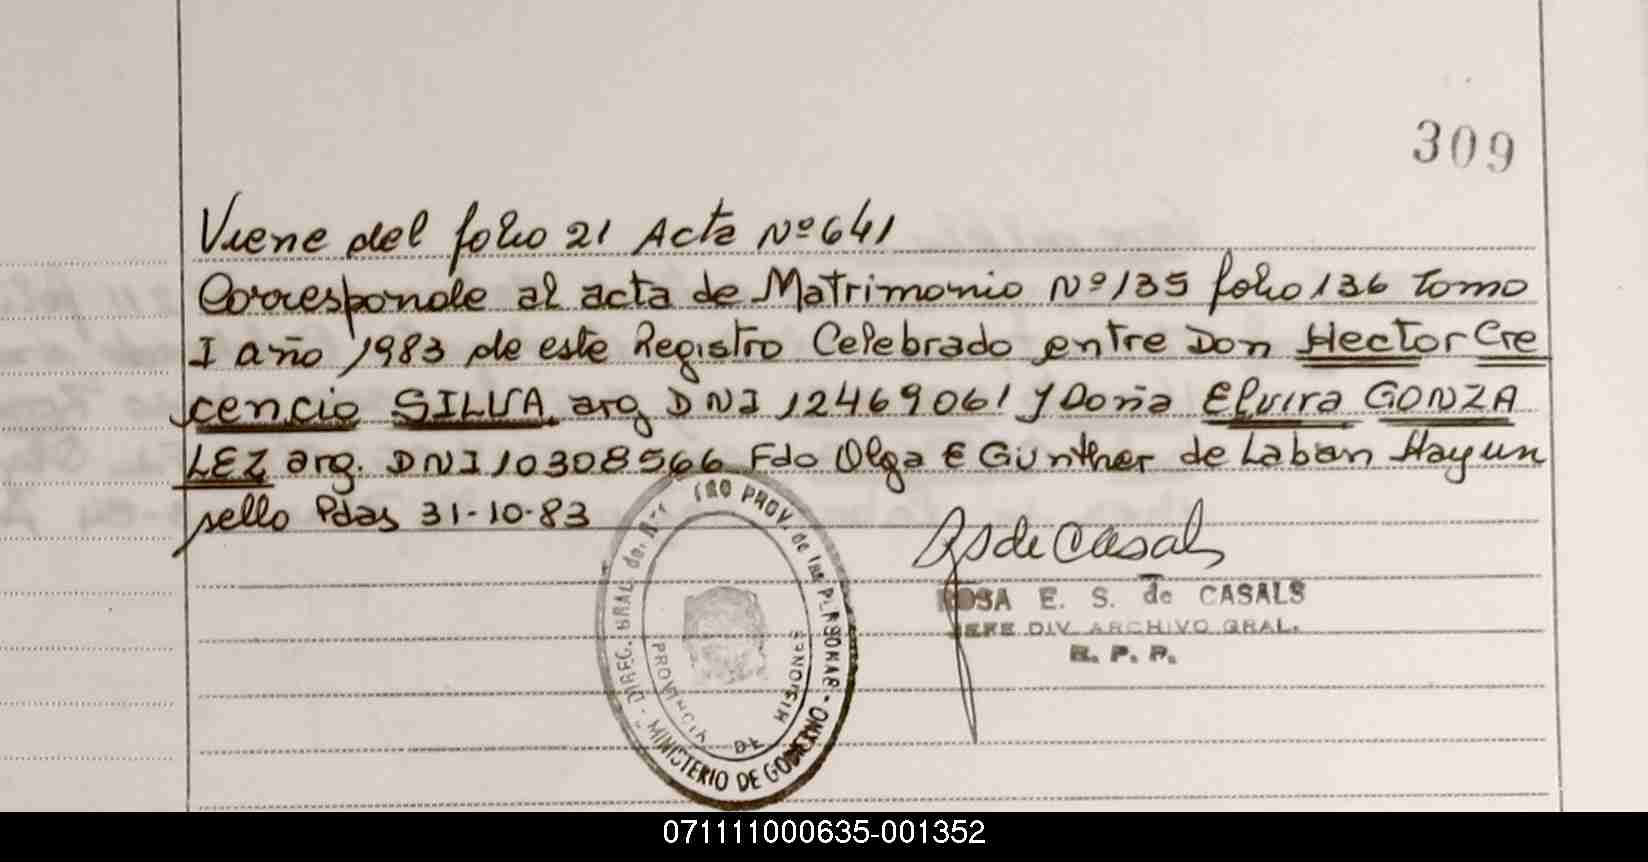 309
Viene del folio 21 Acta Nº 641
Corresponde al acta de Matrimonio Nº 135 folio 136 Tomo
I año 1983 de este Registro Celebrado entre Don Hector Cre
cencio SILVA arg DNI 12469061 y Doña Elvira GONZA
LEZ arg. DNI 10308566 Fdo Olga E Gunther de Laban Hay un
sello Pdas 31-10-83
RS de Casals
ROSA E. S. de CASALS
JEFE DIV ARCHIVO GRAL.
R. P. P.
DIREC. GRAL. del PROV. de las PERSONAS - MINISTERIO DE GOBIERNO
PROVINCIA DE MISIONES
071111000635-001352